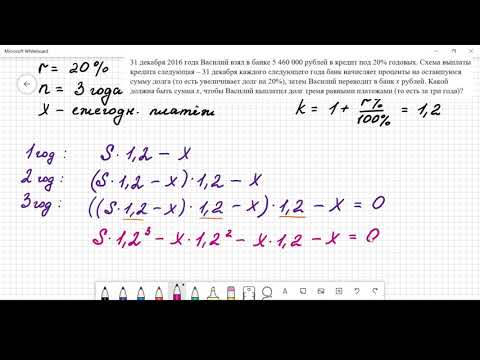 Microsoft Whiteboard
31 декабря 2016 года Василий взял в банке 5 460 000 рублей в кредит под 20% годовых. Схема выплаты
кредита следующая – 31 декабря каждого следующего года банк начисляет проценты на оставшуюся
сумму долга (то есть увеличивает долг на 20%), затем Василий переводит в банк x рублей. Какой
должна быть сумма x, чтобы Василий выплатил долг тремя равными платежами (то есть за три года)?
r = 20%
n = 3 года
x – ежегодн. платёж
k = 1 + r%/100% = 1,2
1 год: S·1,2 – x
2 год: (S·1,2 – x)·1,2 – x
3 год: ((S·1,2 – x)·1,2 – x)·1,2 – x = 0
S·1,2³ – x·1,2² – x·1,2 – x = 0